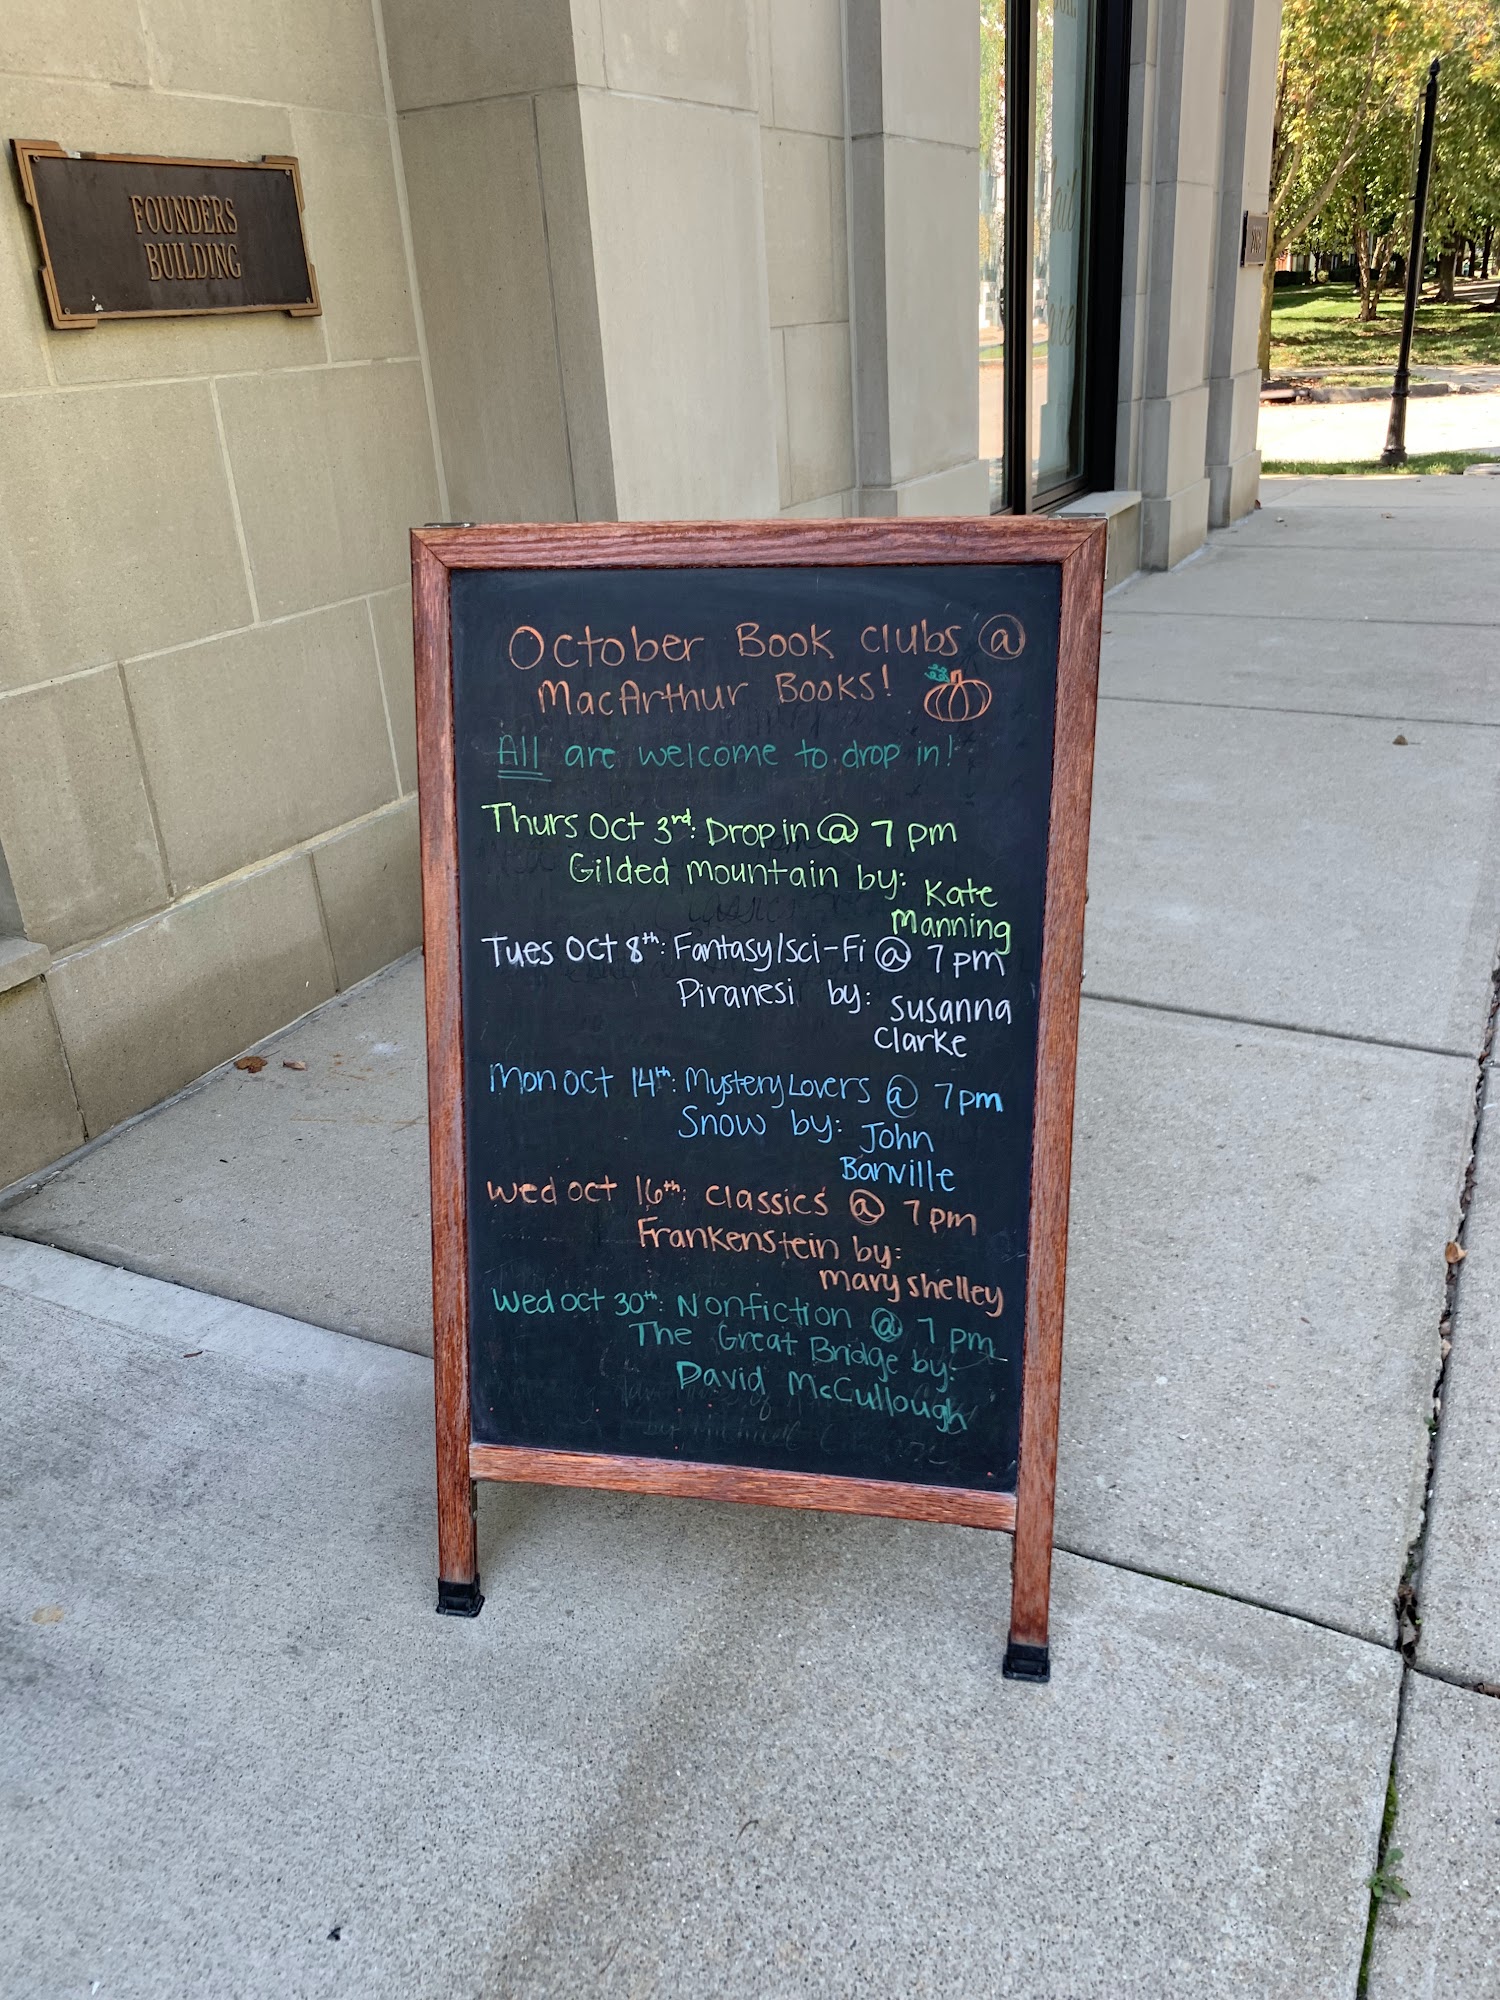 FOUNDERS
BUILDING
October Book Clubs @
MacArthur Books!
All are welcome to drop in!
Thurs Oct 3rd: Drop in @ 7 pm
Gilded Mountain by: Kate
Manning
Tues Oct 8th: Fantasy/Sci-Fi @ 7 pm
Piranesi by: Susanna
Clarke
Mon Oct 14th: Mystery Lovers @ 7pm
Snow by: John
Banville
Wed Oct 16th: Classics @ 7 pm
Frankenstein by:
Mary Shelley
Wed Oct 30th: Nonfiction @ 7 pm
The Great Bridge by:
David McCullough